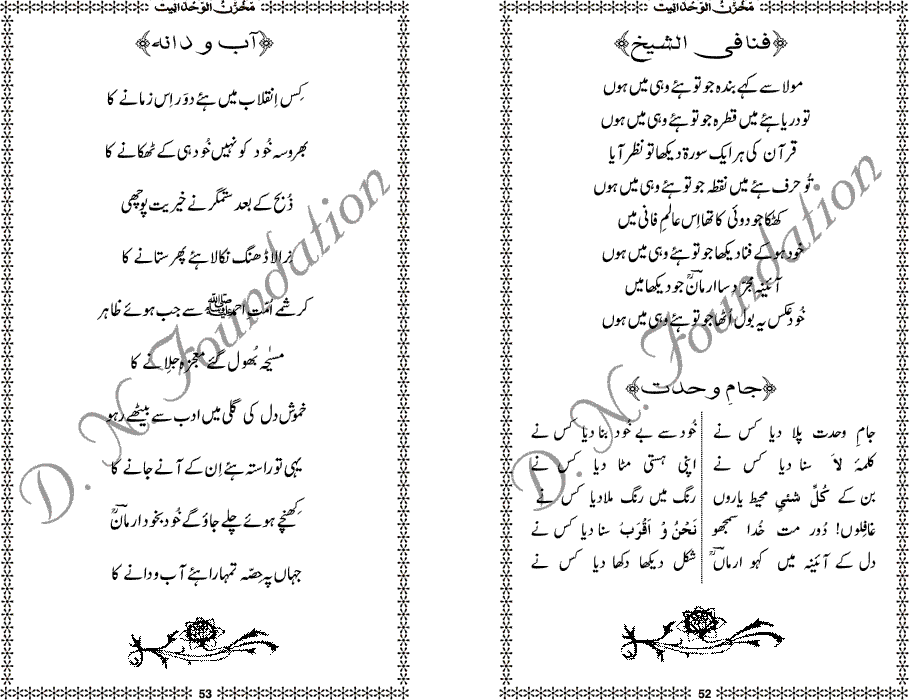 مَخْزَنُ الوَحْدَانِیت
فنا فی الشیخ
مولا سے کہے بندہ جو تو ہئے وہی میں ہوں
تو دریا ہئے میں قطرہ جو تو ہئے وہی میں ہوں
قرآن کی ہر ایک سورۃ دیکھا تو نظر آیا
تُو حرف ہئے میں نقطہ جو تو ہئے وہی میں ہوں
کھٹکا جو دوئی کا تھا اِس عالمِ فانی میں
خُود ہو کے فنا دیکھا جو تو ہئے وہی میں ہوں
آئینہ مجرّد سا ارمانؔ جو دیکھا میں
خُود عکس یہ بول اُٹھا جو تو ہئے وہی میں ہوں
جامِ وحدت
جامِ وحدت پلا دیا کس نے خُود سے بے خُود بنا دیا کس نے
کلمۂ لاَ سنا دیا کس نے اپنی ہستی مٹا دیا کس نے
بن کے کُلِّ شئیٍ محیط یاروں رنگ میں رنگ ملا دیا کس نے
غافِلوں! دُور مت خُدا سمجھو نَحْنُ وْ اَقْرَبُ سنا دیا کس نے
دل کے آئینہ میں کہو ارمانؔ شکل دیکھا دکھا دیا کس نے
52
مَخْزَنُ الوَحْدَانِیت
آب و دانہ
کِس اِنقلاب میں ہئے دَور اِس زمانے کا
بھروسہ خُود کو نہیں خُود ہی کے ٹھکانے کا
ذُبح کے بعد ستمگر نے خیریت پوچھی
نِرالا ڈھنگ نکالا ہئے پھر ستانے کا
کرشمے اُمّتِ احمدﷺ سے جب ہوئے ظاہر
مسیحٰہ بُھول گئے معجزہ جِلانے کا
خموش دل کی گلی میں ادب سے بیٹھے رہو
یہی تو راستہ ہئے اِن کے آنے جانے کا
کِھنچے ہوئے چلے جاؤ گے خُود بخود ارمانؔ
جہاں پہ حصّہ تمہارا ہئے آب و دانے کا
53
D. N. Foundation
D. N. Foundation